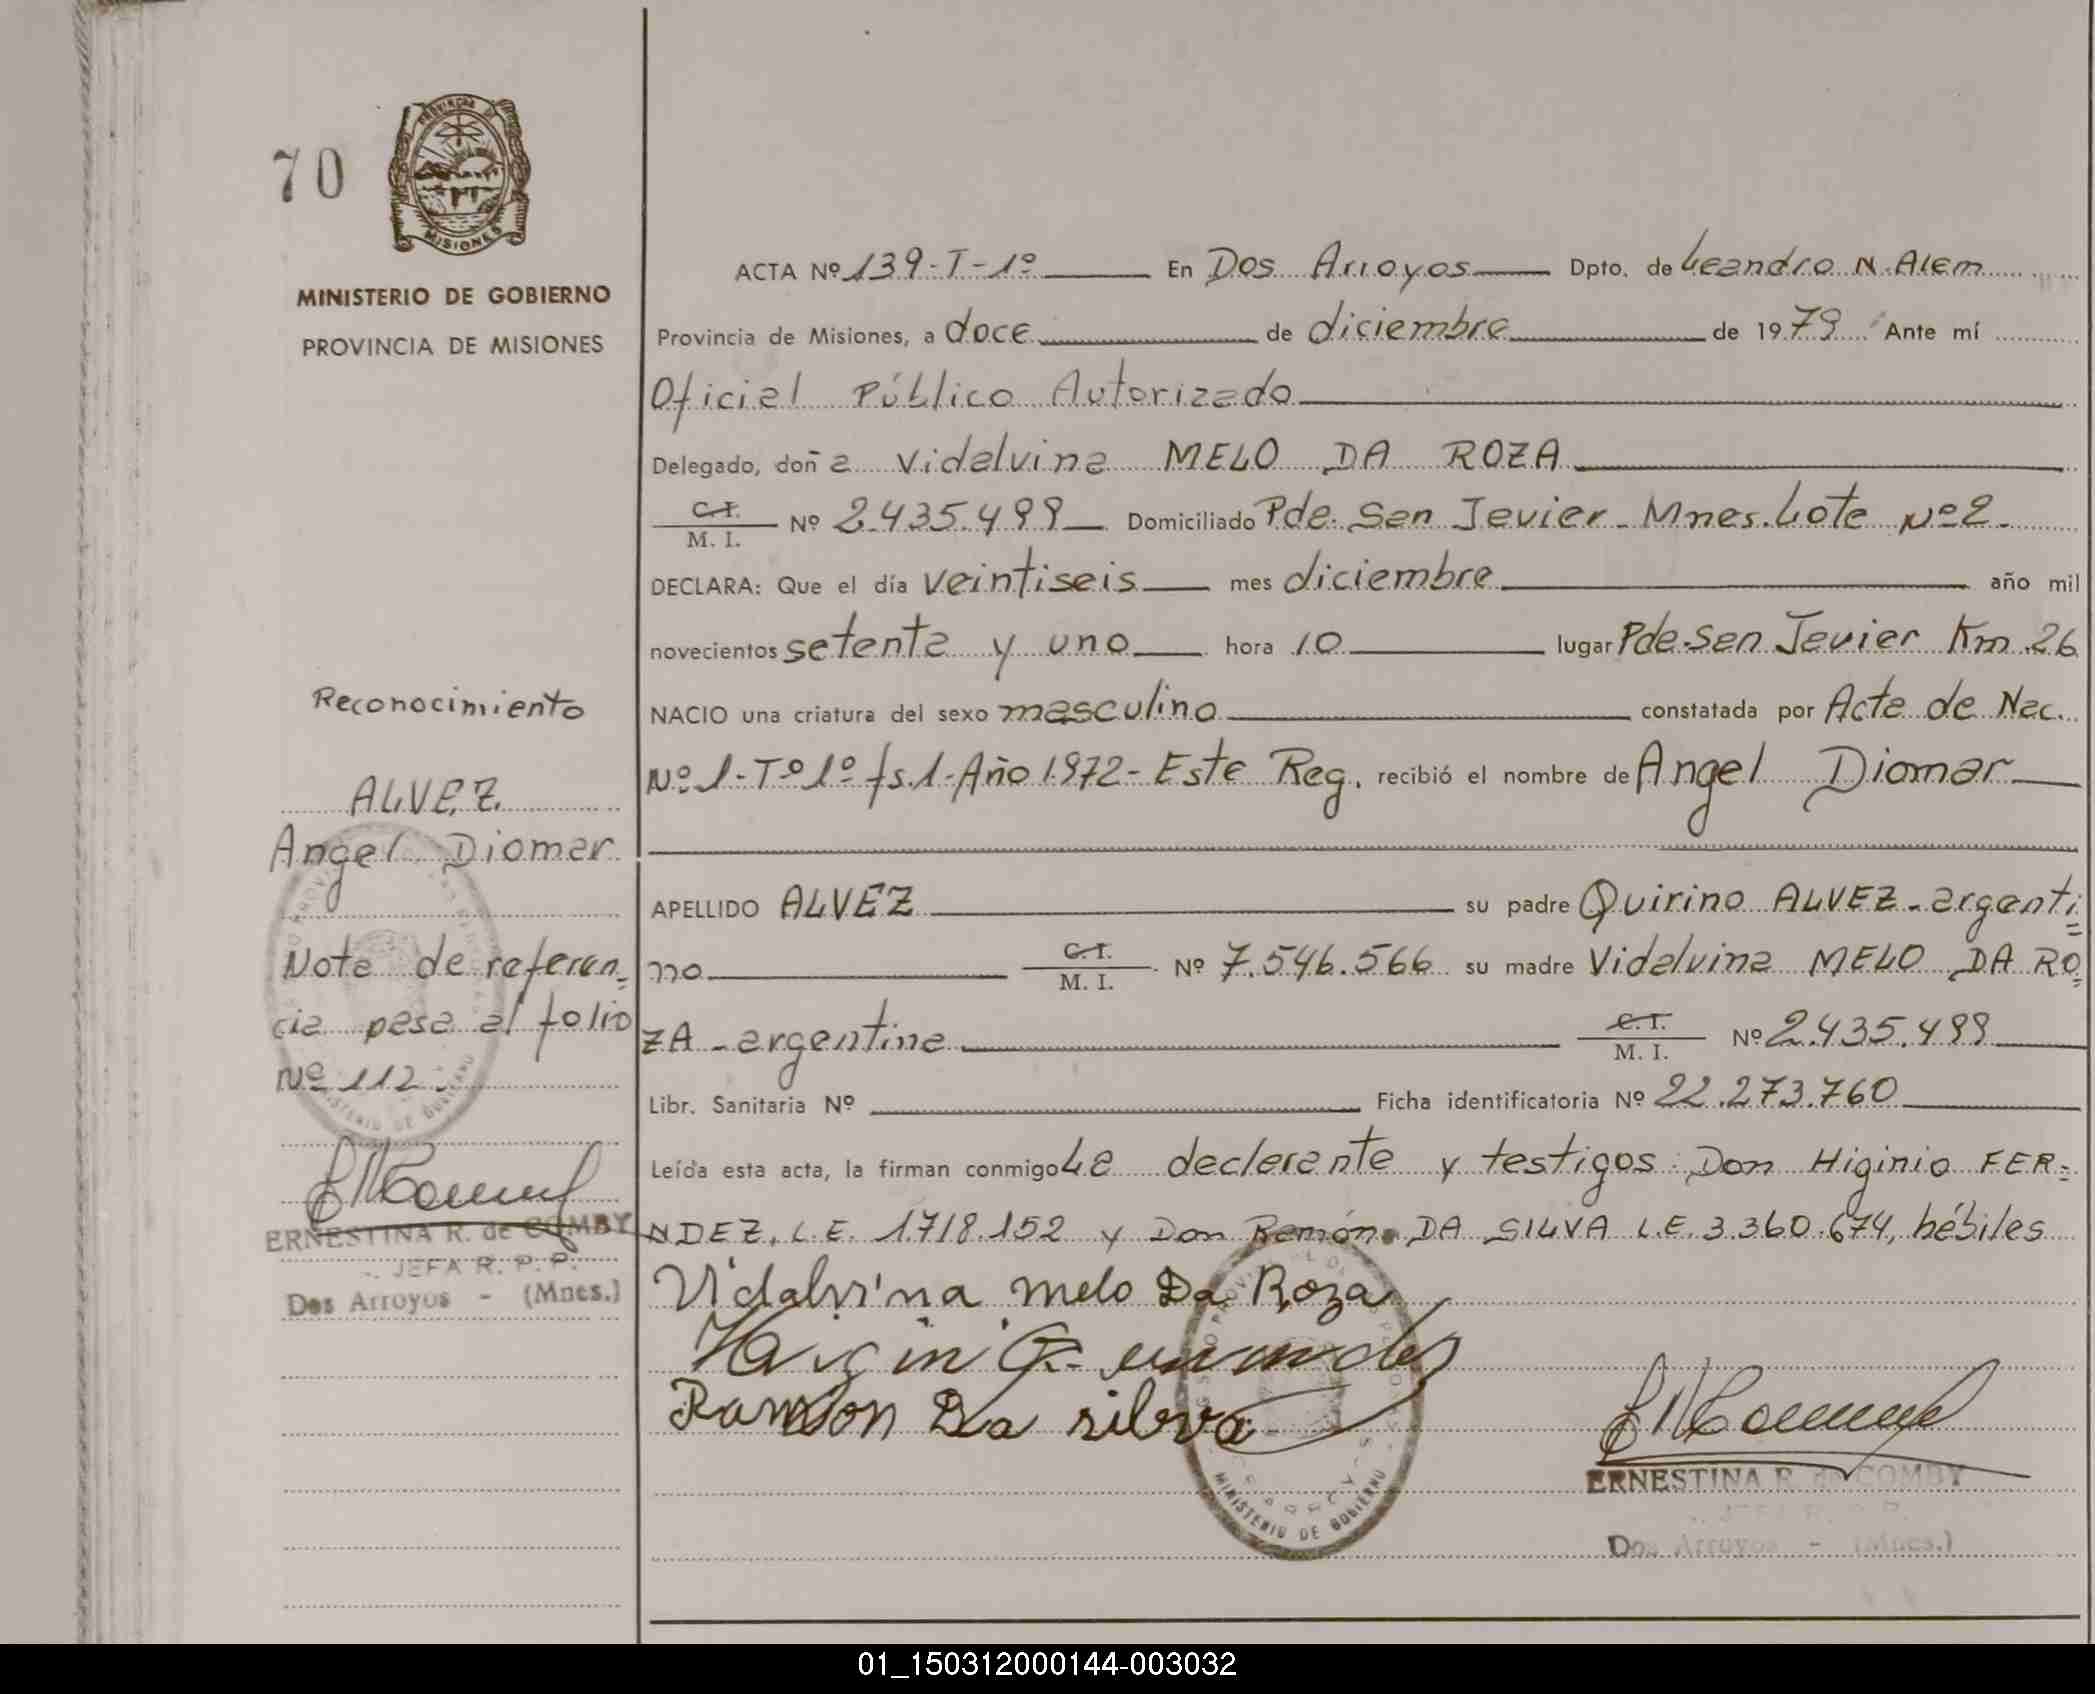 70
PROVINCIA DE
MISIONES
MINISTERIO DE GOBIERNO
PROVINCIA DE MISIONES
ACTA Nº 139-T-1º En Dos Arroyos Dpto. de Leandro N. Alem
Provincia de Misiones, a doce de diciembre de 1979 Ante mí
Oficial Público Autorizado
Delegado, doña Vidalvina MELO DA ROZA
C.I. M. I. Nº 2.435.499 Domiciliado Pde. San Javier - Mnes. Lote Nº 2.
DECLARA: Que el día veintiseis mes diciembre año mil
novecientos setenta y uno hora 10 lugar Pde. San Javier Km. 26
NACIO una criatura del sexo masculino constatada por Acta de Nac.
Nº 1-Tº 1º fs.1-Año 1972- Este Reg. recibió el nombre de Angel Diomar
APELLIDO ALVEZ su padre Quirino ALVEZ - argenti=
no C.I. M. I. Nº 7.546.566 su madre Vidalvina MELO DA RO=
ZA - argentina C.I. M. I. Nº 2.435.499
Libr. Sanitaria Nº Ficha identificatoria Nº 22.273.760
Leída esta acta, la firman conmigo La declarante y testigos: Don Higinio FER=
NDEZ, L.E. 1.718.152 y Don Ramón DA SILVA L.E. 3.360.674, hábiles
Vidalvina melo Da Roza
Ramon Da silva
ERNESTINA R. de COMBY
JEFA R. P. P.
Dos Arroyos - (Mnes.)
MINISTERIO DE GOBIERNO
Reconocimiento
ALVEZ
Angel Diomar
Nota de referen=
cia pasa al folio
Nº 112.
MINISTERIO DE GOBIERNO
ERNESTINA R. de COMBY
JEFA R. P. P.
Dos Arroyos - (Mnes.)
01_150312000144-003032